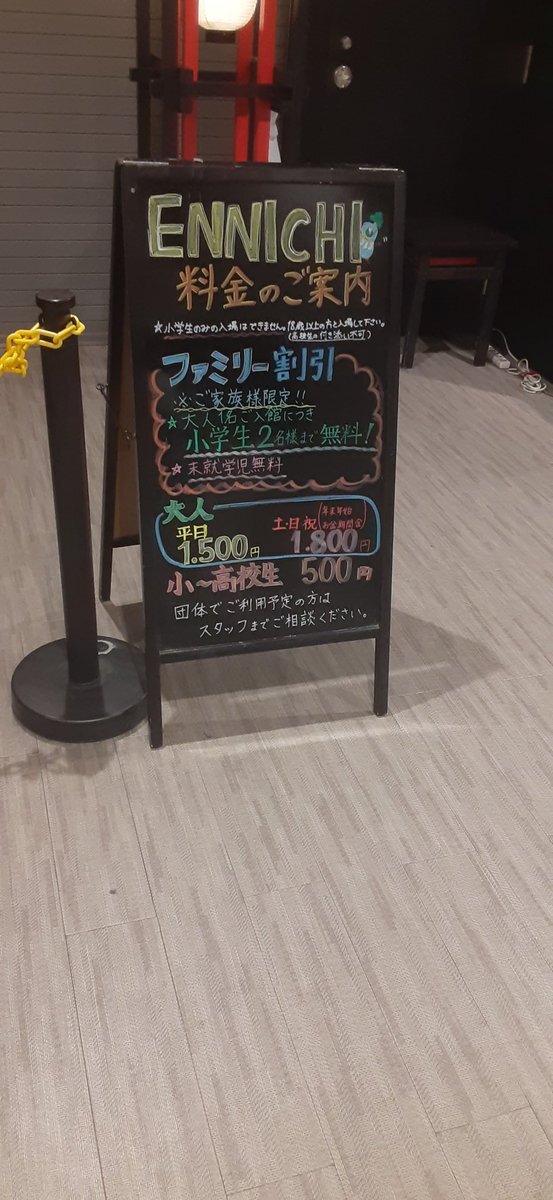 ENNICHI
料金のご案内
★小学生のみの入場はできません。18歳以上の方と入場して下さい。
(高校生の付き添い不可)
ファミリー割引
※ご家族様限定!!
★大人1名ご入館につき
小学生2名様まで無料!
★未就学児無料
大人
平日
1.500円
土・日祝(年末年始
お盆期間含)
1.800円
小〜高校生 500円
団体でご利用予定の方は
スタッフまでご相談ください。